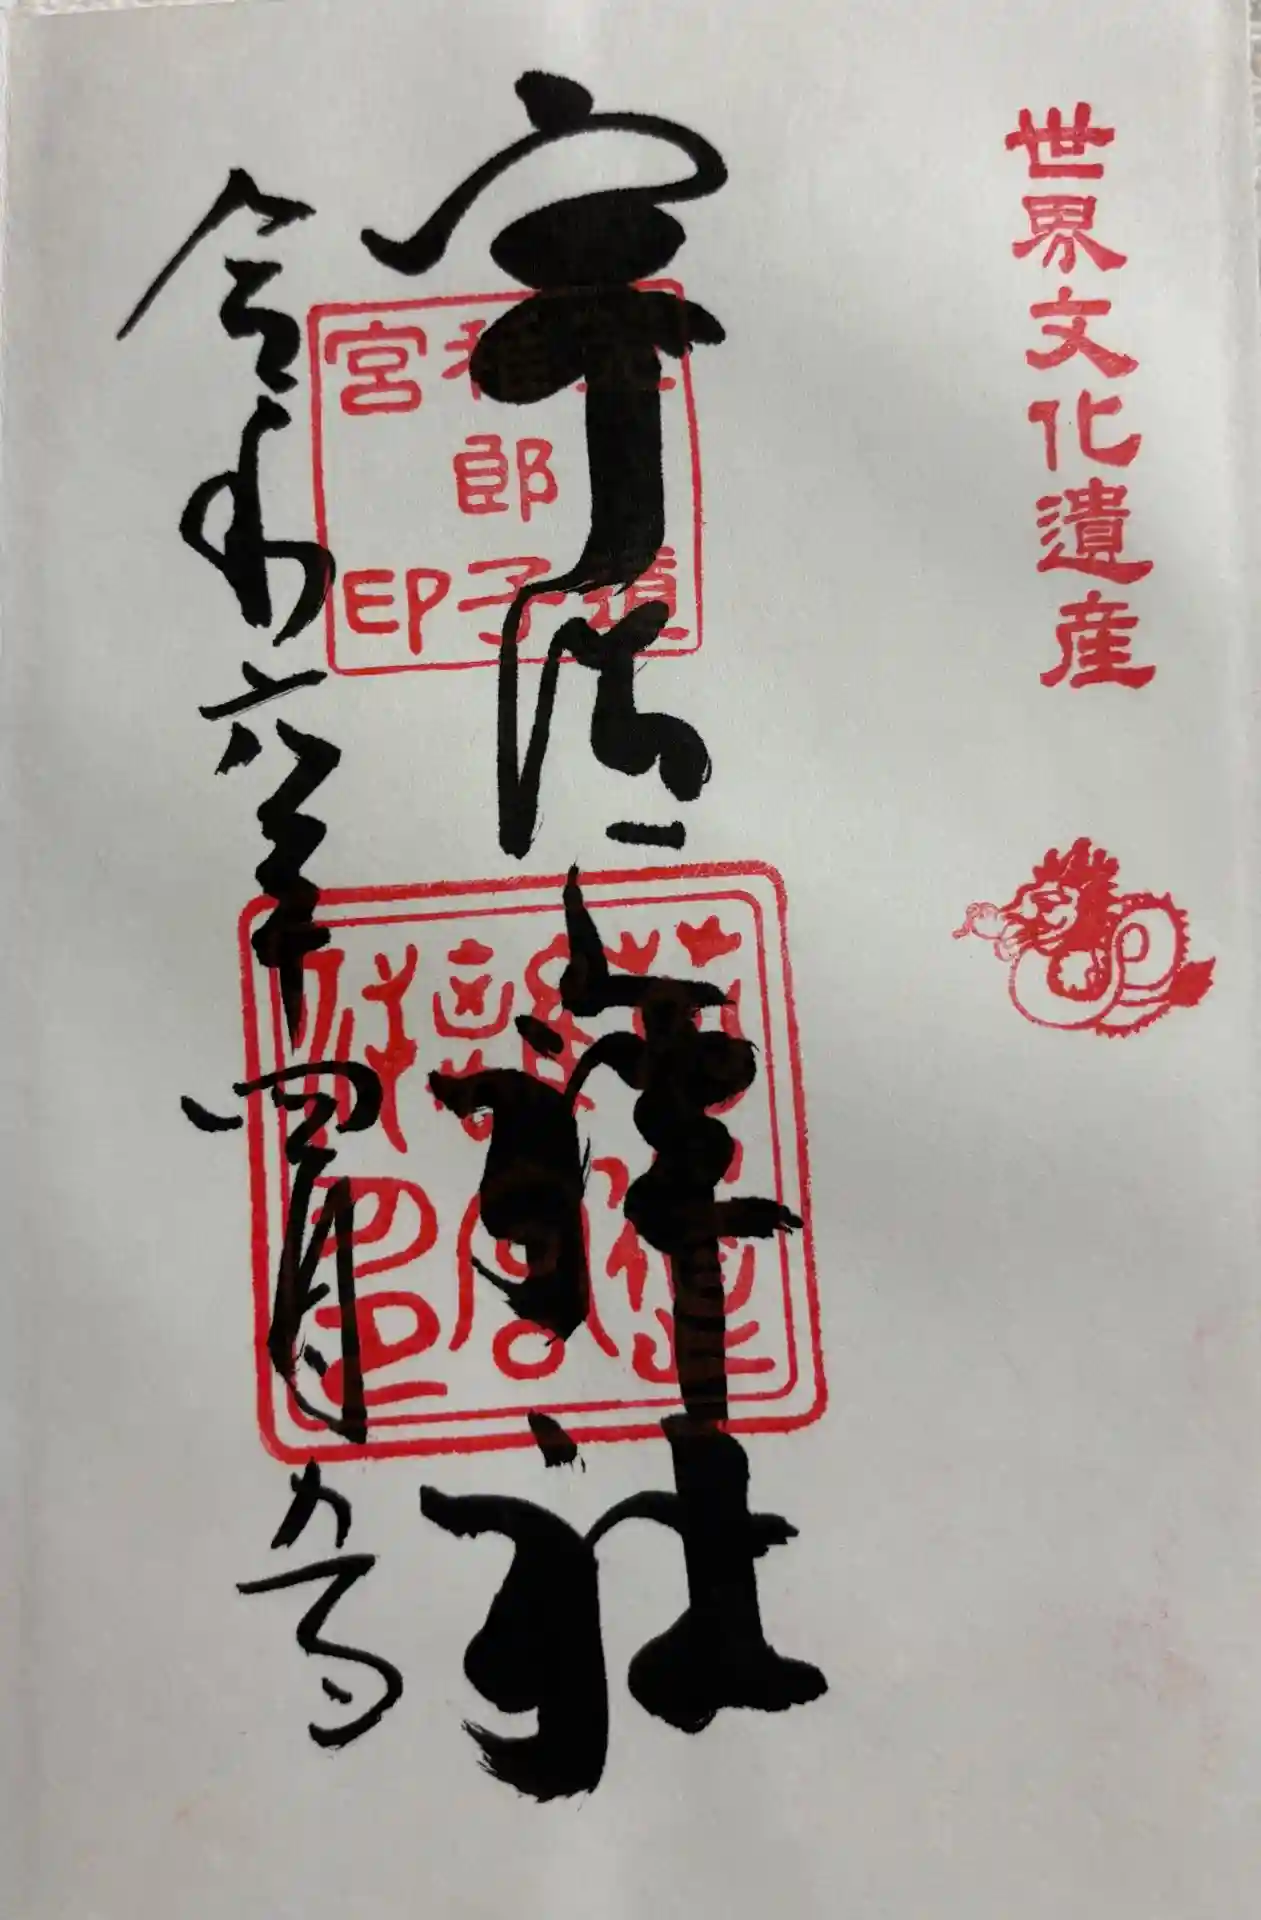 世界文化遺産
宇治上神社
菟道
稚郎子
宮印
令和六年四月九日